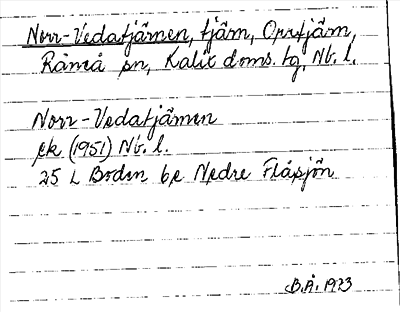 Norr-Vedatjärnen, tjärn,
Råneå sn, Kalix doms. tg, Nb. l.
Norr-Vedatjärnen
ek (1951) Nb. l.
25 L Boden be Nedre Flåsjön
B.Å. 1973